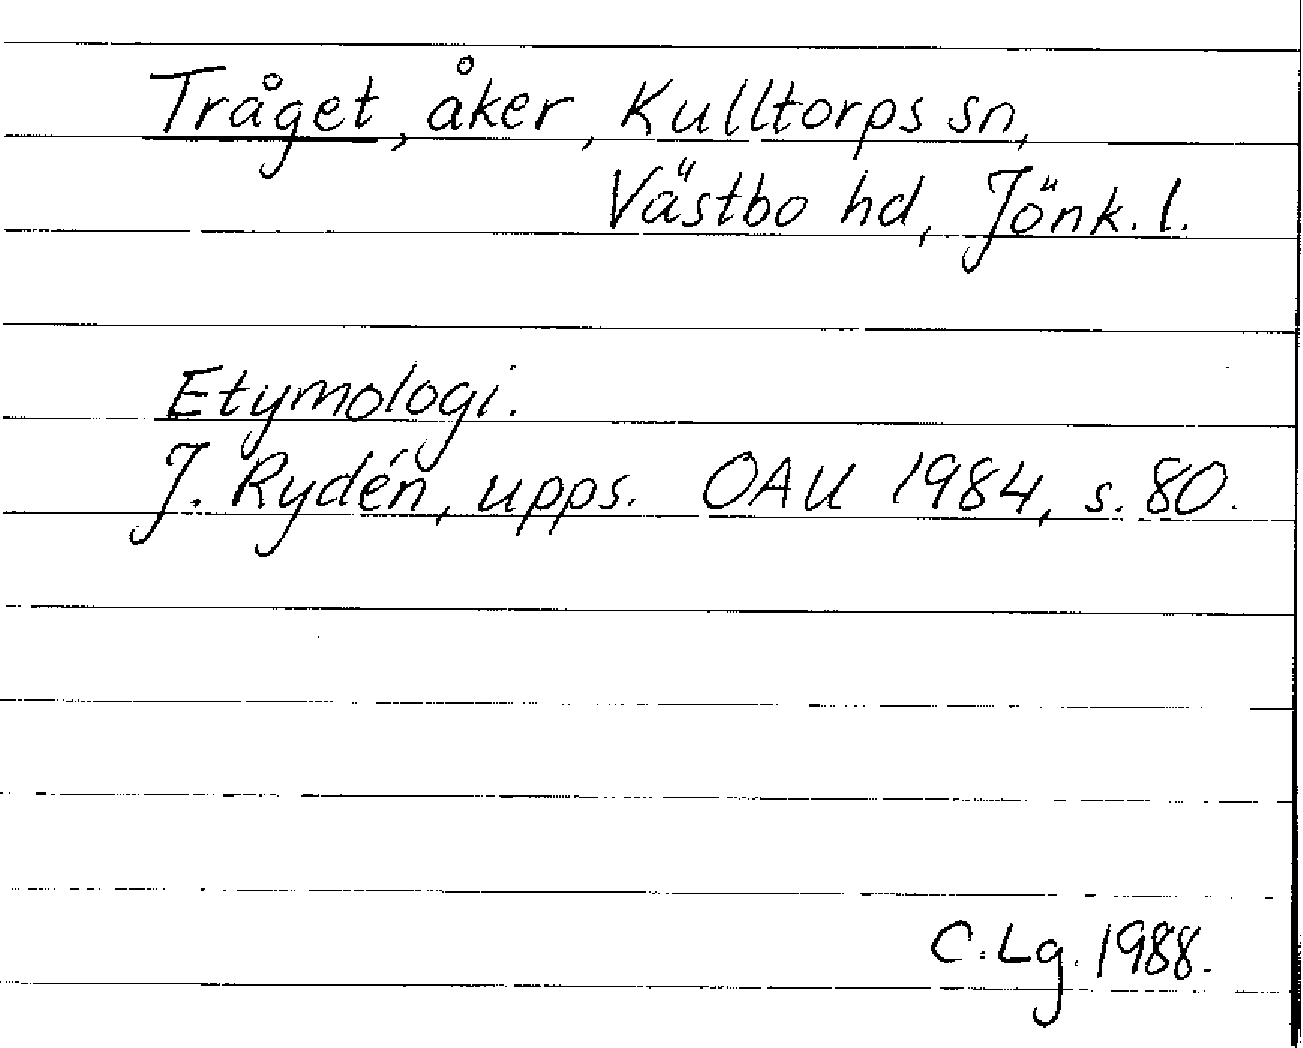 Tråget, åker, Kulltorps sn,
Västbo hd, Jönk. l.
Etymologi.
J. Rydén, upps. OAU 1984, s. 80.
C. Lg. 1988.